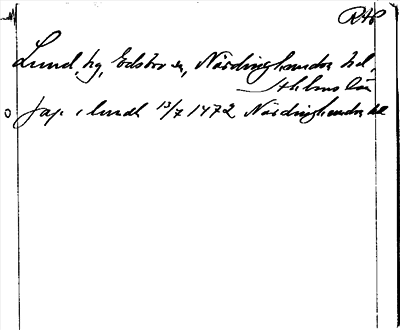 RAP
Lund, hg, Edsbro sn, Närdinghundra hd,
Sthlms län
pap. i lundh 13/7 1472 Närdinghundra hd